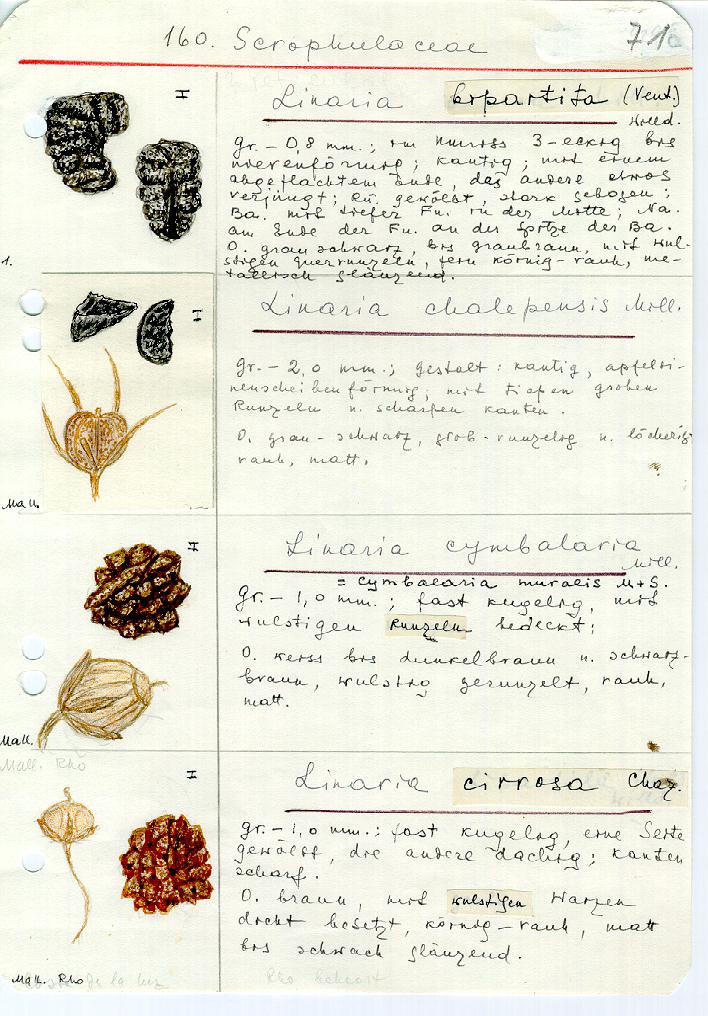 160. Scrophulaceae
71
Linaria bipartita (Vent.)
Willd.
gr. - 0,8 mm.; im Umriss 3-eckig bis
nierenförmig; kantig; mit einem
abgeflachtem Ende, das andere etwas
verjüngt; Rü. gewölbt, stark gebogen;
Ba. mit tiefer Fu. in der Mitte; Na.
am Ende der Fu. an der Spitze der Ba.
O. grauschwarz, bis graubraun, mit wul-
stigen Querrunzeln, fein körnig-rauh, me-
tallisch glänzend.
1.
Linaria chalepensis Mill.
gr. - 2,0 mm.; Gestalt: kantig, apfelsi-
nenscheibenförmig; mit tiefen groben
Runzeln u. scharfen Kanten.
O. grau-schwarz, grob-runzelig u. löcherig-
rauh, matt.
Mall.
Linaria cymbalaria
Mill.
= Cymbalaria muralis M+S.
gr. - 1,0 mm.; fast kugelig, mit
wulstigen Runzeln bedeckt;
O. weiss bis dunkelbraun u. schwarz-
braun, wulstig gerunzelt, rauh,
matt.
Mall.
Mall. Rho
Linaria cirrosa Chaz.
gr. - 1,0 mm.; fast kugelig, eine Seite
gewölbt, die andere dachig; Kanten
scharf.
O. braun, mit wulstigen Warzen
dicht besetzt, körnig-rauh, matt
bis schwach glänzend.
Mall. Rho